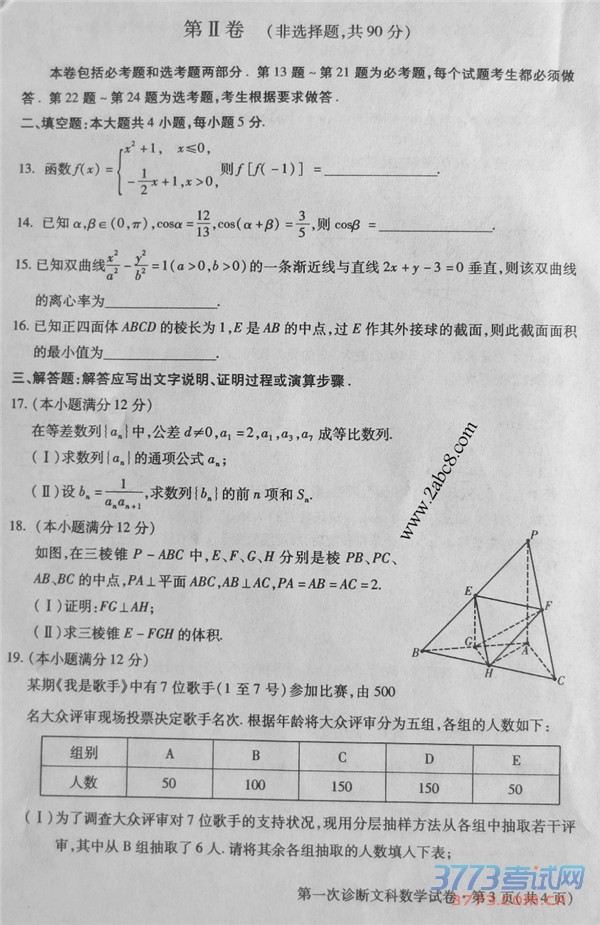 第Ⅱ卷 (非选择题,共90分)
本卷包括必考题和选考题两部分. 第13题~第21题为必考题,每个试题考生都必须做
答. 第22题~第24题为选考题,考生根据要求做答.
二、填空题:本大题共4小题,每小题5分.
13. 函数f(x)={x²+1, x≤0, -1/2x+1,x>0, 则f[f(-1)]=____________.
14. 已知α,β∈(0,π),cosα=12/13,cos(α+β)=3/5,则cosβ=____________.
15. 已知双曲线x²/a²-y²/b²=1(a>0,b>0)的一条渐近线与直线2x+y-3=0垂直,则该双曲线
的离心率为____________.
16. 已知正四面体ABCD的棱长为1,E是AB的中点,过E作其外接球的截面,则此截面面积
的最小值为____________.
三、解答题:解答应写出文字说明、证明过程或演算步骤.
17. (本小题满分12分)
在等差数列{aₙ}中,公差d≠0,a₁=2,a₁,a₃,a₇成等比数列.
(Ⅰ)求数列{aₙ}的通项公式aₙ;
(Ⅱ)设bₙ=1/(aₙaₙ₊₁),求数列{bₙ}的前n项和Sₙ.
www.2abc8.com
18. (本小题满分12分)
如图,在三棱锥P-ABC中,E、F、G、H分别是棱PB、PC、
AB、BC的中点,PA⊥平面ABC,AB⊥AC,PA=AB=AC=2.
(Ⅰ)证明:FG⊥AH;
(Ⅱ)求三棱锥E-FGH的体积.
P
E
F
G
A
B
H
C
19. (本小题满分12分)
某期《我是歌手》中有7位歌手(1至7号)参加比赛,由500
名大众评审现场投票决定歌手名次. 根据年龄将大众评审分为五组,各组的人数如下:
组别 A B C D E
人数 50 100 150 150 50
(Ⅰ)为了调查大众评审对7位歌手的支持状况,现用分层抽样方法从各组中抽取若干评
审,其中从B组抽取了6人. 请将其余各组抽取的人数填入下表;
第一次诊断文科数学试卷·第3页(共4页)
3773考试网
3773.com.cn